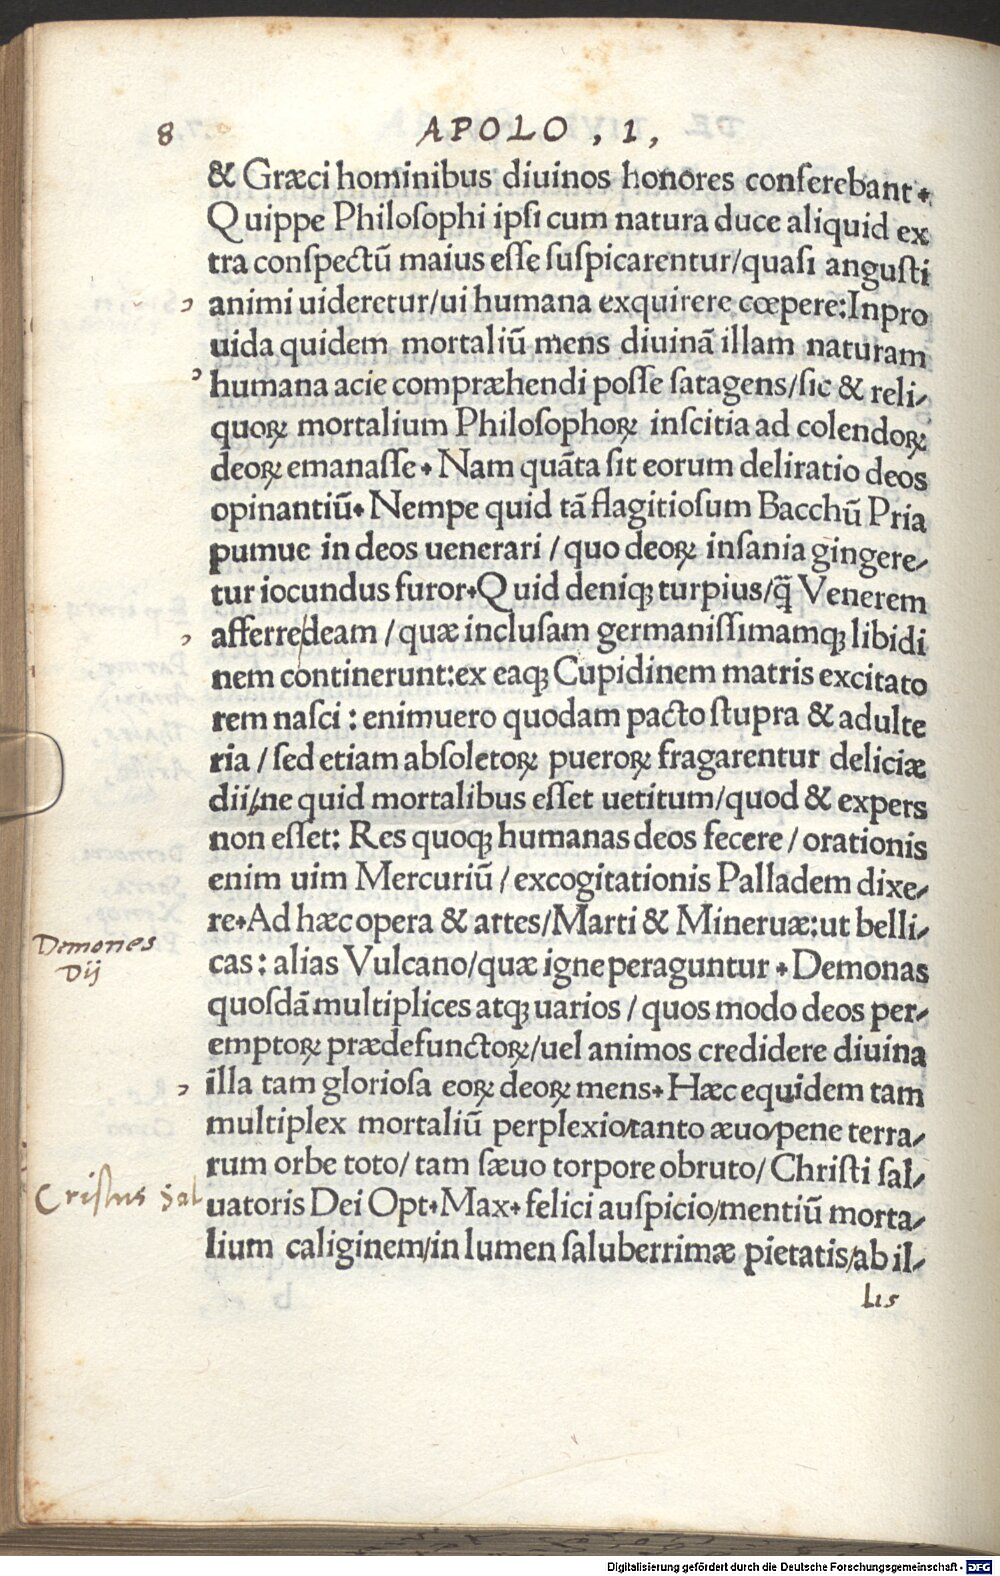 8 APOLO , 1 ,
& Græci hominibus diuinos honores conferebant.
Quippe Philoſophi ipſi cum natura duce aliquid ex
tra conſpectũ maius eſſe ſuſpicarentur/quaſi anguſti
animi uideretur/ui humana exquirere cœpere:Inpro
uida quidem mortaliũ mens diuinã illam naturam
humana acie compræhendi poſſe ſatagens/ſic & reli/
quoꝝ mortalium Philoſophoꝝ inſcitia ad colendoꝝ
deoꝝ emanaſſe. Nam quãta ſit eorum deliratio deos
opinantiũ. Nempe quid tã flagitioſum Bacchũ Pria
pumue in deos uenerari / quo deoꝝ inſania gingere/
tur iocundus furor. Quid deniqꝫ turpius/q̃ Venerem
afferre deam / quæ incluſam germaniſſimamqꝫ libidi
nem continerunt:ex eaqꝫ Cupidinem matris excitato
rem naſci : enimuero quodam pacto ſtupra & adulte
ria / ſed etiam abſoletoꝝ pueroꝝ fragarentur deliciæ
dii/ne quid mortalibus eſſet uetitum/quod & expers
non eſſet: Res quoqꝫ humanas deos fecere / orationis
enim uim Mercuriũ / excogitationis Palladem dixe/
re. Ad hæc opera & artes/Marti & Mineruæ:ut belli/
Demones
Dij
cas: alias Vulcano/quæ igne peraguntur . Demonas
quoſdã multiplices atqꝫ uarios / quos modo deos per/
emptoꝝ prædefunctoꝝ/uel animos credidere diuina
illa tam glorioſa eoꝝ deoꝝ mens. Hæc equidem tam
multiplex mortaliũ perplexio/tanto æuo/pene terra/
rum orbe toto/ tam ſæuo torpore obruto/ Chriſti ſal/
Cristus Sal
uatoris Dei Opt. Max. felici auſpicio/mentiũ morta/
lium caliginem/in lumen ſaluberrimæ pietatis/ab il/
lis
Digitalisierung gefördert durch die Deutsche Forschungsgemeinschaft - DFG